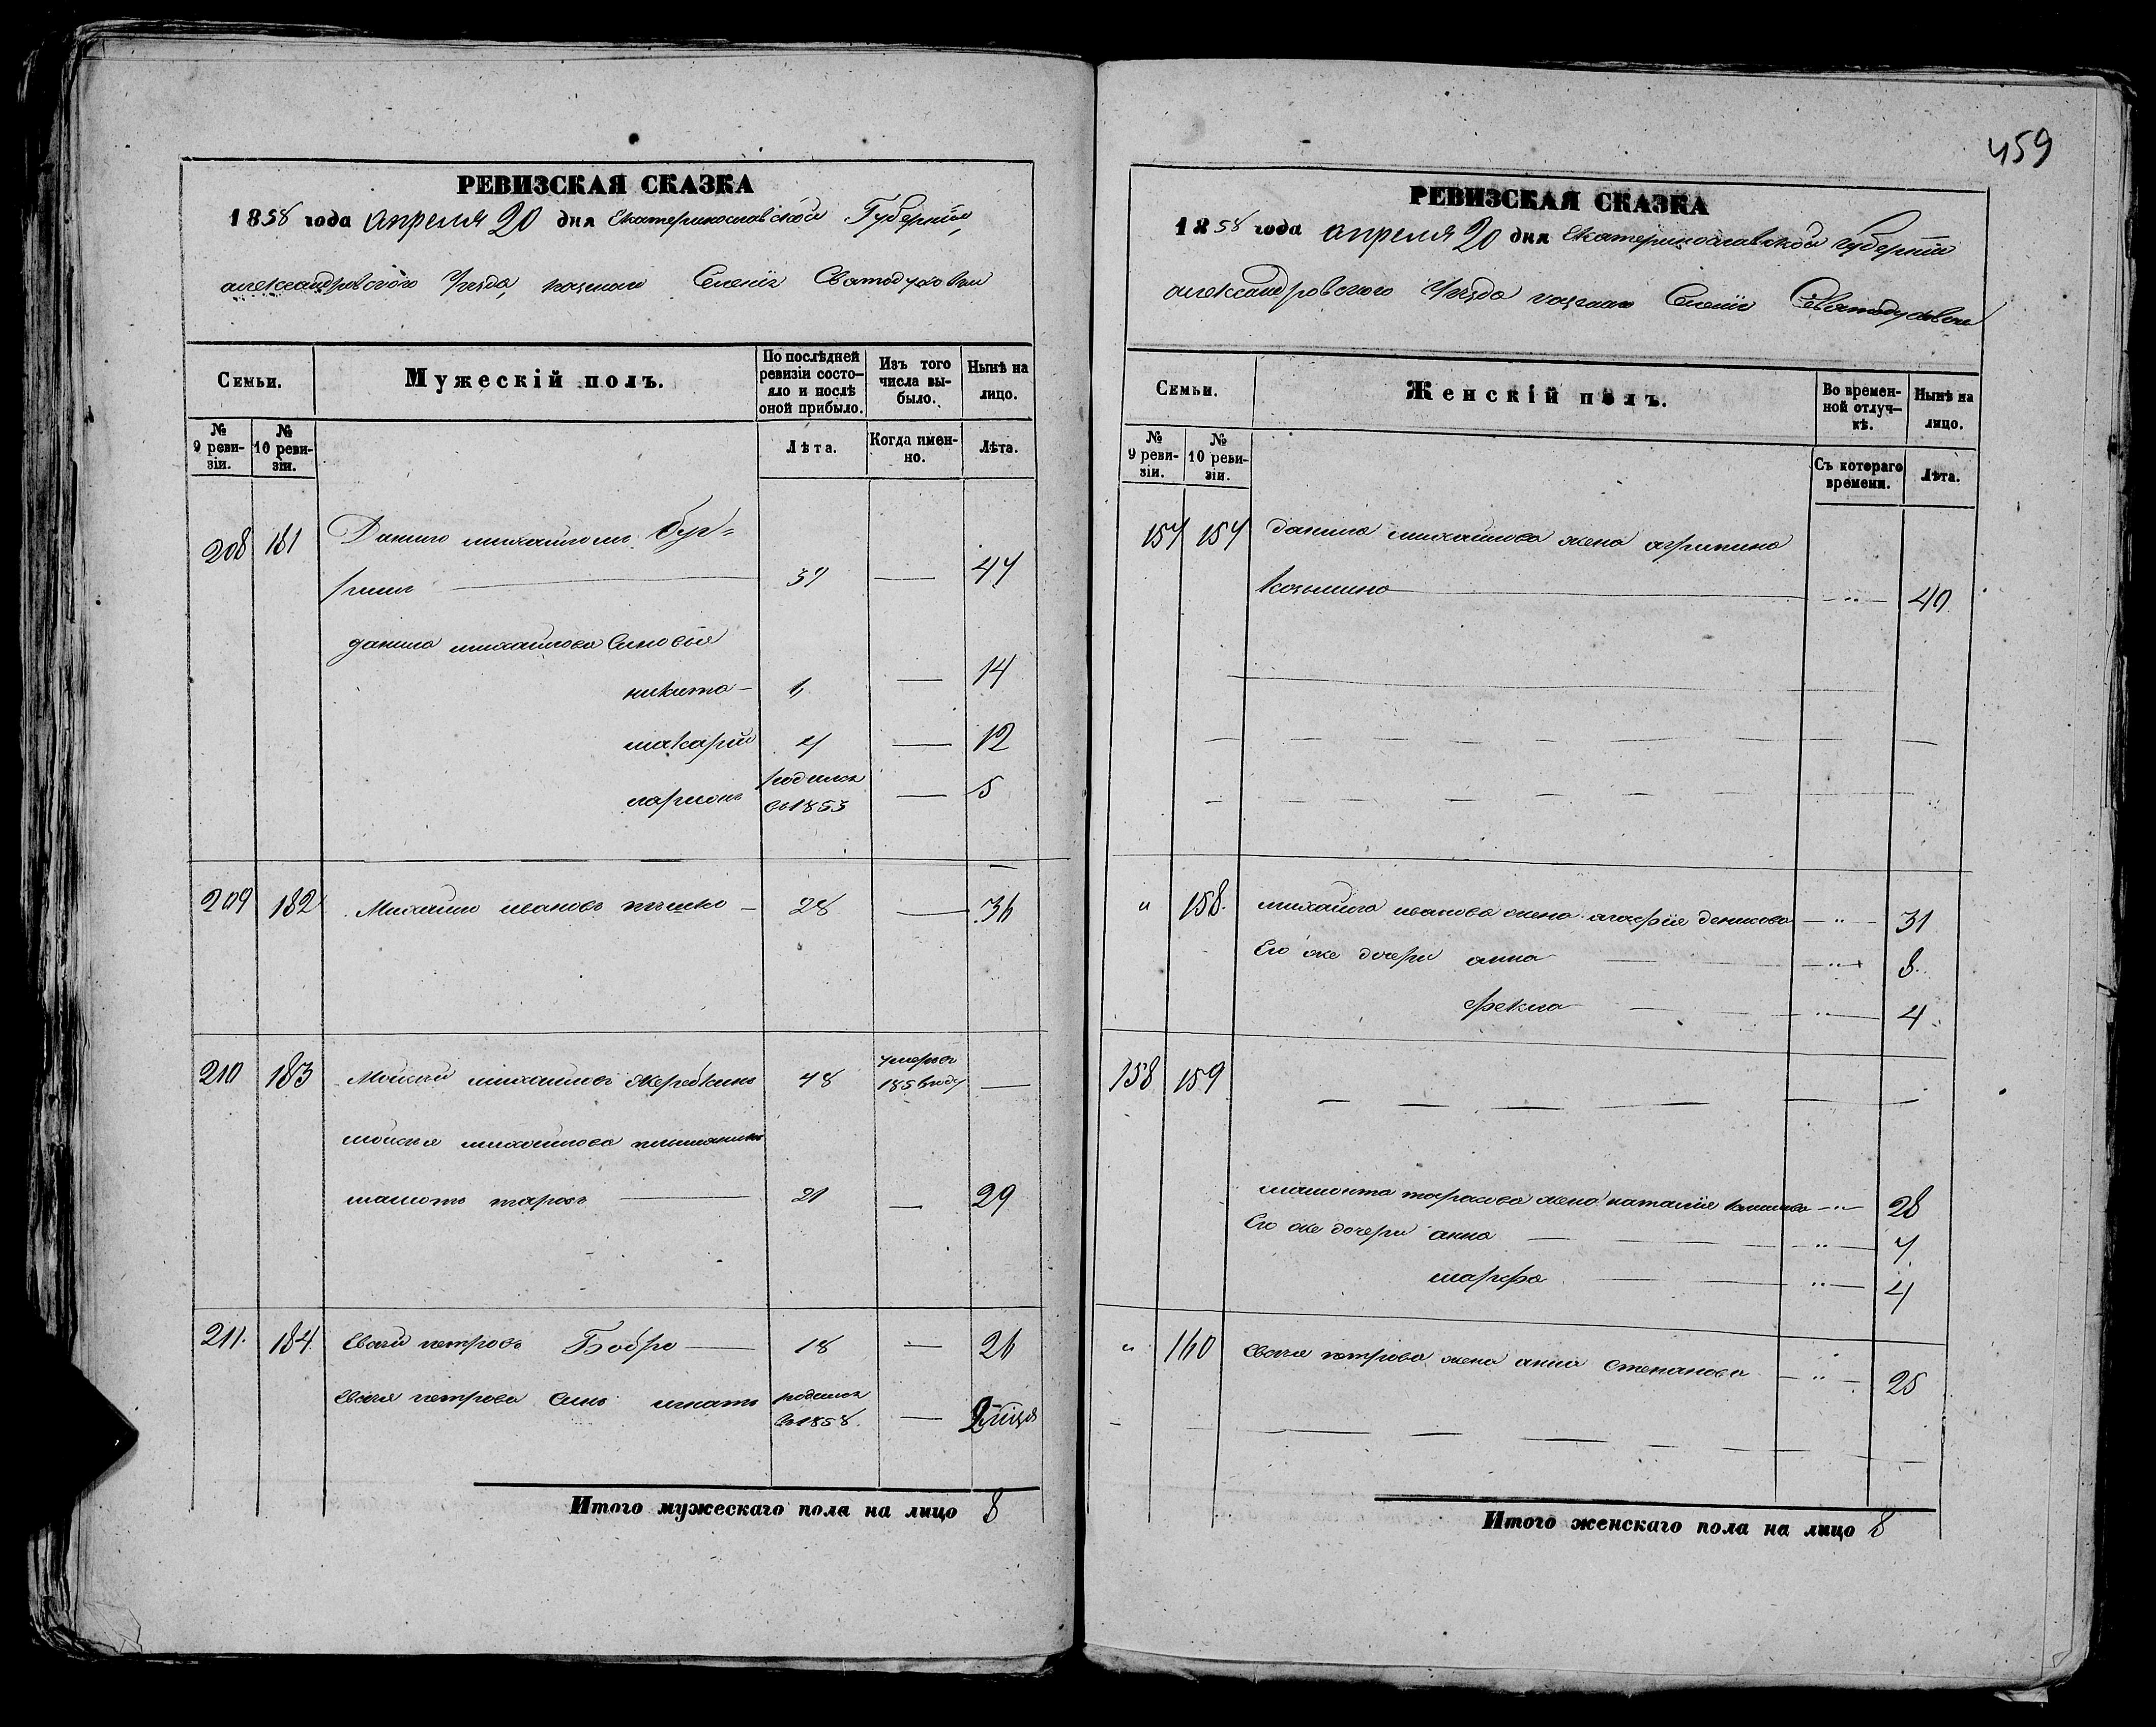 459
РЕВИЗСКАЯ СКАЗКА
1858 года апреля 20 дня Екатеринославской Губернiи,
александровского Уезда, казеннаго Селенiя Святодуховки
Семьи.
Мужескій полъ.
По послѣдней ревизіи состояло и послѣ оной прибыло.
Изъ того числа выбыло.
Нынѣ на лицо.
№ 9 ревизіи.
№ 10 ревизіи.
Лѣта.
Когда именно.
Лѣта.
208 181 Данило михайловъ
данила михайлова Сыновья
никита — 14
макарій 4 — 12
ларионъ родился въ 1853 — 5
209 182 Михайло ивановъ 28 — 36
210 183 Моисей михайловъ Жеребкинъ 48 умеръ въ —
моисея михайлова племянникъ
мамонтъ тарасъ — 21 — 29
211. 184. Евсѣй петровъ Бобро — 18 — 26
Евсѣя петрова Сынъ игнатъ родился въ 1858. —
Итого мужескаго пола на лицо 8
РЕВИЗСКАЯ СКАЗКА
1858 года апреля 20 дня Екатеринославской губернiи
александровского Уезда казеннаго Селенiя Святодуховки
Семьи.
Женскій полъ.
Во временной отлучкѣ.
Нынѣ на лицо.
№ 9 ревизіи.
№ 10 ревизіи.
Съ котораго времени.
Лѣта.
157 157 данила михайлова жена агрипина
— " — 40
" 158. михайла иванова жена агафiя денисова — " — 31
Его же дочери анна — " — 8.
фекла — " — 4.
158 159
мамонта тарасова жена наталiя — " — 28
Его же дочери анна — " — 7.
марфа — " — 4
" 160 Евсѣя петрова жена анна Степанова — " — 25
Итого женскаго пола на лицо 8